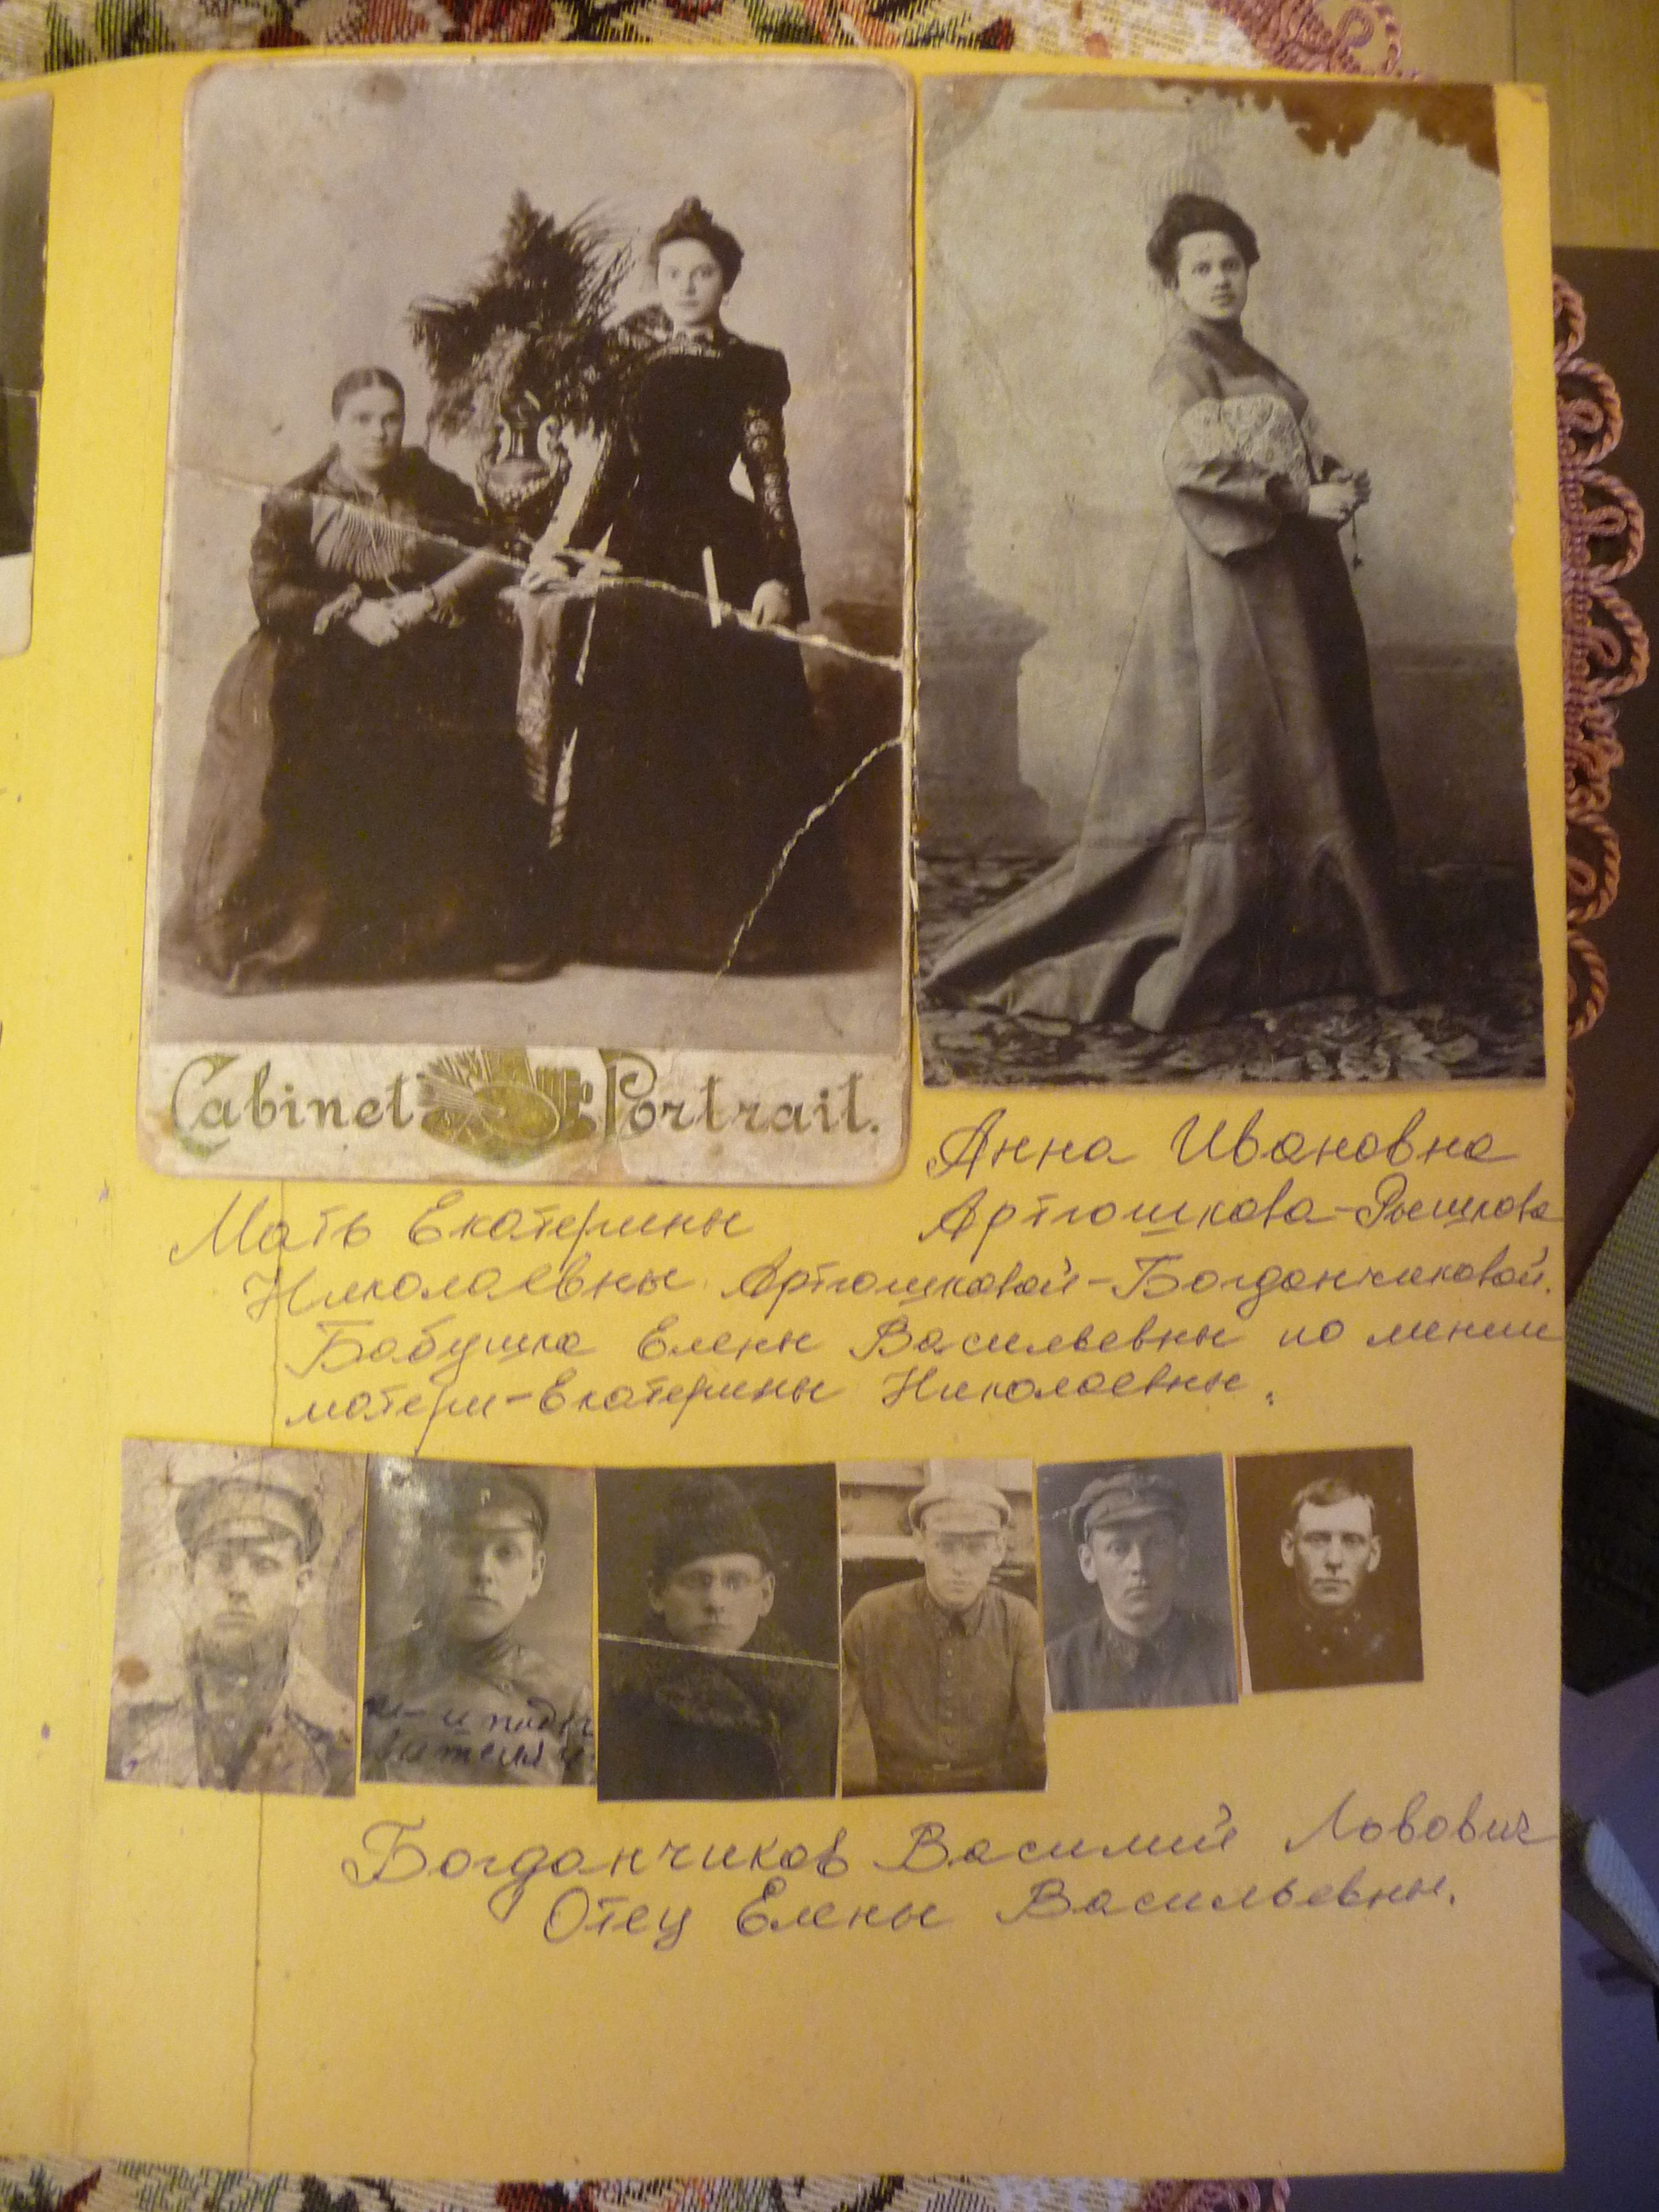 Cabinet Portrait.
Анна Ивановна
Артюшкова-Рышкова
Мать Екатерины
Николаевны Артюшковой-Богданчиковой.
Бабушка Елены Васильевны по линии
матери-Екатерины Николаевны.
Богданчиков Василий Львович
Отец Елены Васильевны.